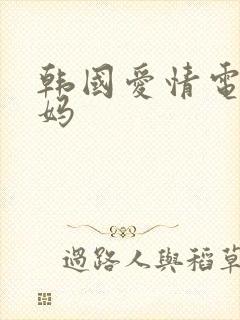 韩國愛情電
妈
過路人與稻草